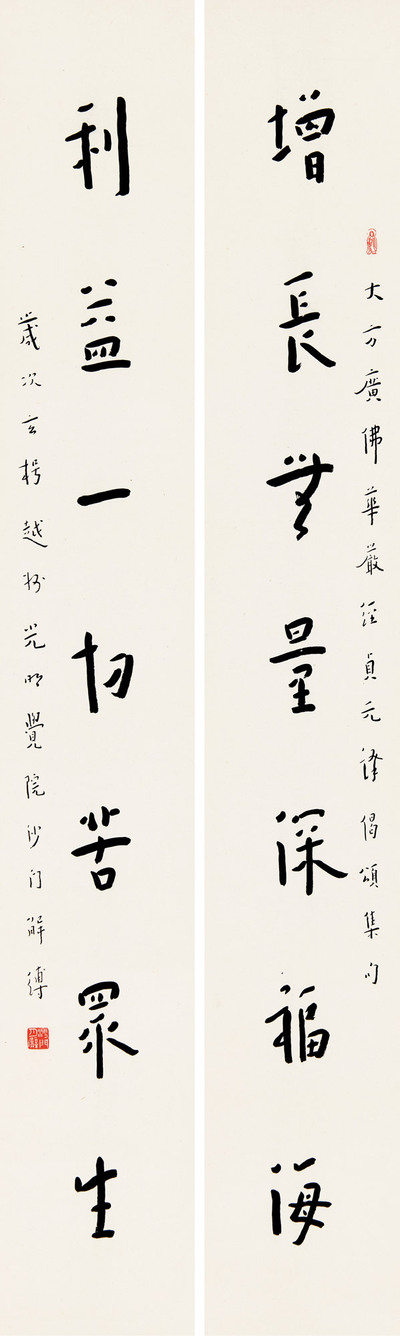 大方廣佛華嚴經貞元譯偈頌集句
增長無量深福海
利益一切苦眾生
歲次玄枵越州光明覺院沙門解縛